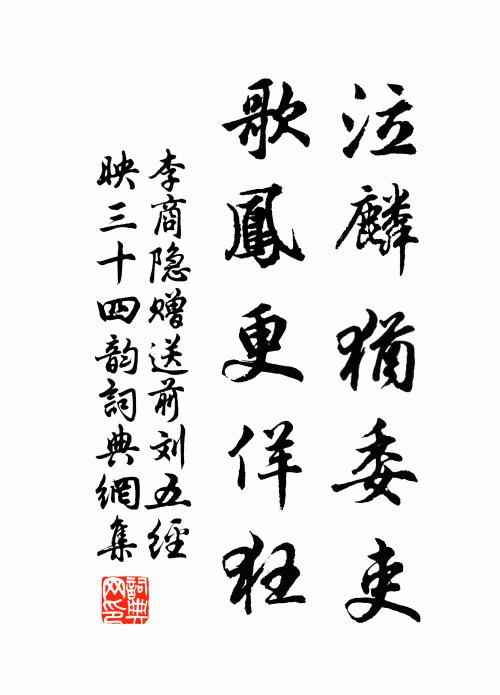 泣麟猶委吏
歌鳳更佯狂
李商隐赠送前刘五經
映三十四韵詞典網集
詞典網印